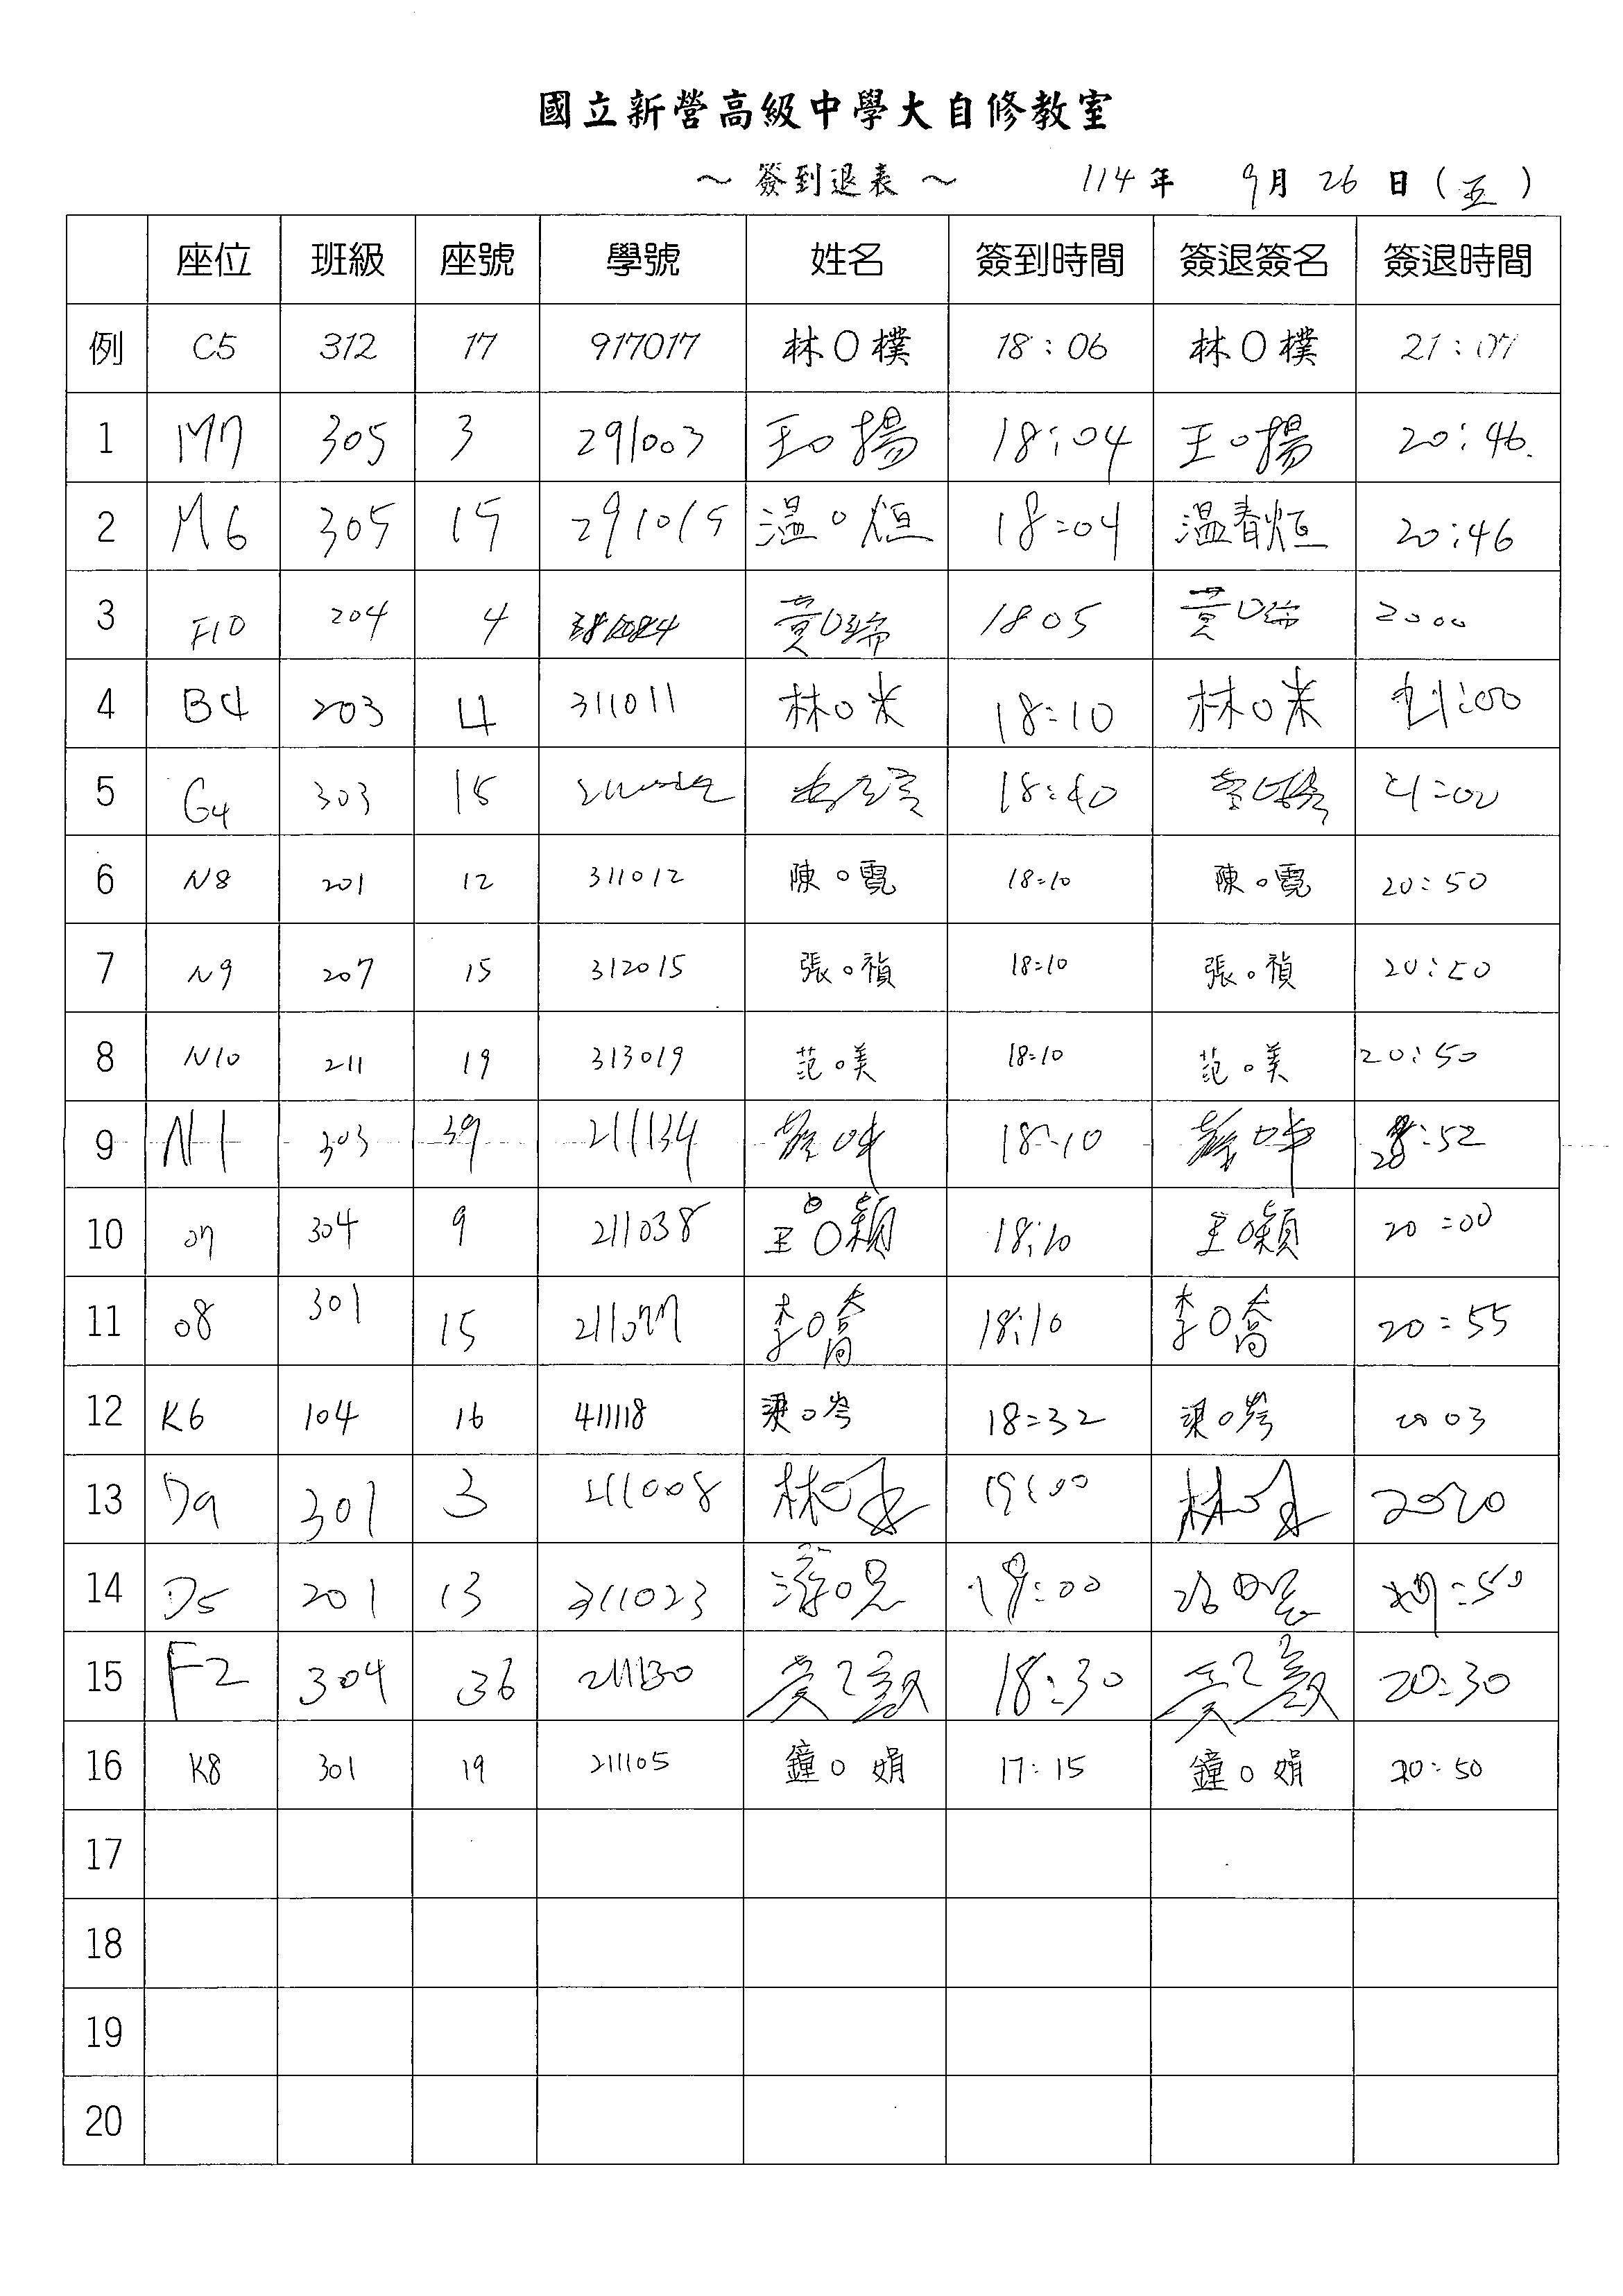 國立新營高級中學大自修教室
～ 簽到退表 ～ 114 年 9 月 26 日 ( 五 )
座位 班級 座號 學號 姓名 簽到時間 簽退簽名 簽退時間
例 C5 312 17 917017 林O樸 18:06 林O樸 21:07
1 M7 305 3 291003 王O揚 18:04 王O揚 20:46.
2 M6 305 15 291015 溫O烜 18:04 溫春烜 20:46
3 F10 204 4 黃O瑞 1805 黃O瑞 2000
4 B4 203 4 311011 林O米 18:10 林O米 21:00
5 G4 303 15 18:40 21:00
6 N8 201 12 311012 陳O霓 18:10 陳O霓 20:50
7 N9 207 15 312015 張O禎 18:10 張O禎 20:50
8 N10 211 19 313019 范O美 18:10 范O美 20:50
9 N1 303 39 211134 18:10 20:52
10 O7 304 9 211038 王O穎 18:10 王O穎 20:00
11 O8 301 15 211077 李O喬 18:10 李O喬 20:55
12 K6 104 16 411118 梁O岑 18:32 梁O岑 2003
13 D9 301 3 211008 林O 19:00 林O 2020
14 D5 201 13 311023 19:00 :50
15 F2 304 36 211130 18:30 20:30
16 K8 301 19 211105 鐘O娟 17:15 鐘O娟 20:50
17
18
19
20